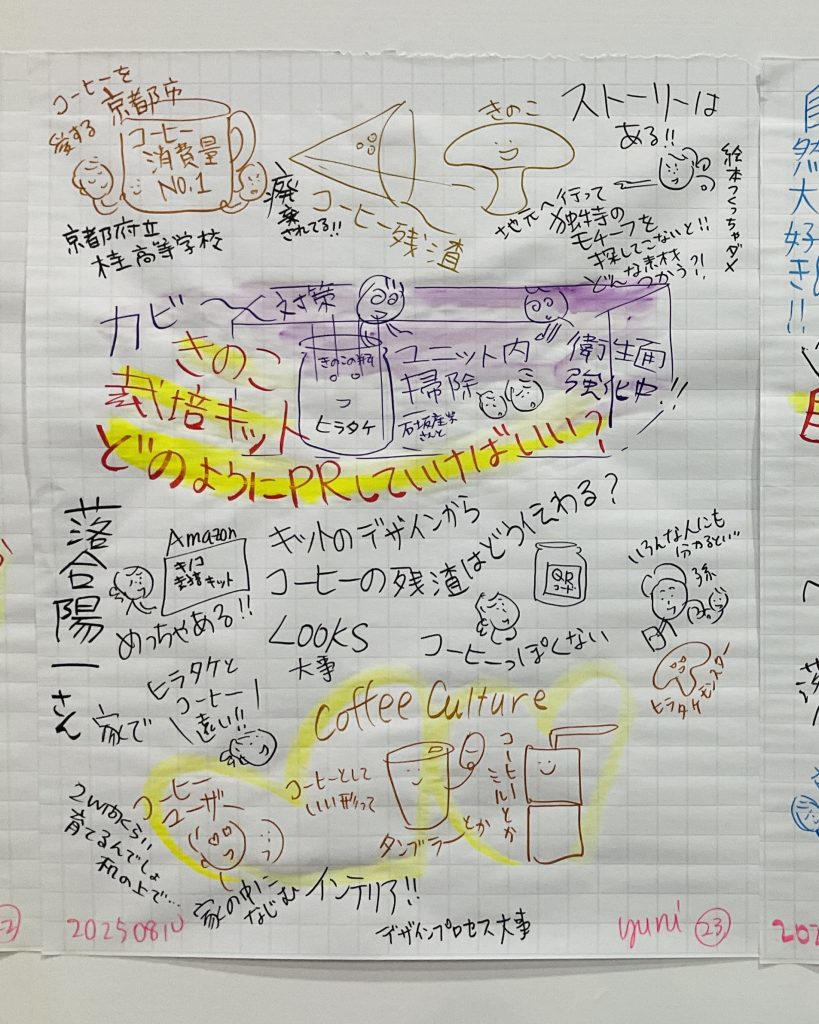 コーヒーを
愛する
京都市
コーヒー
消費量
NO.1
京都府立
桂高等学校
廃棄
されてる!!
コーヒー残渣
きのこ
ストーリーは
ある!!
絵本つくっちゃダメ
地元へ行って
独特の
モチーフを
探してこないと!!
どんな素材
つかう?!
カビ
対策
きのこの
ヒラタケ
ユニット内
掃除
石坂産業
さんと
衛生面
強化中!!
きのこ
栽培キット
どのようにPRしていけばいい?
落合陽一さん
Amazon
キノコ
栽培キット
めっちゃある!!
キットのデザインから
コーヒーの残渣はどう伝わる?
QR
コード
LOOKS
大事
コーヒーっぽくない
いろんな人にも
分かるといい
孫
ヒラタケモンスター
家で
ヒラタケと
コーヒー
遠い!!
Coffee Culture
コーヒー
ユーザー
コーヒーとして
いい形って
タンブラーとか
コーヒーミルとか
2Wめくらい
育てるんでしょ
机の上で…
家の中に
なじむ
インテリア!!
デザインプロセス大事
20250810
yuni
23
自然大好き!!